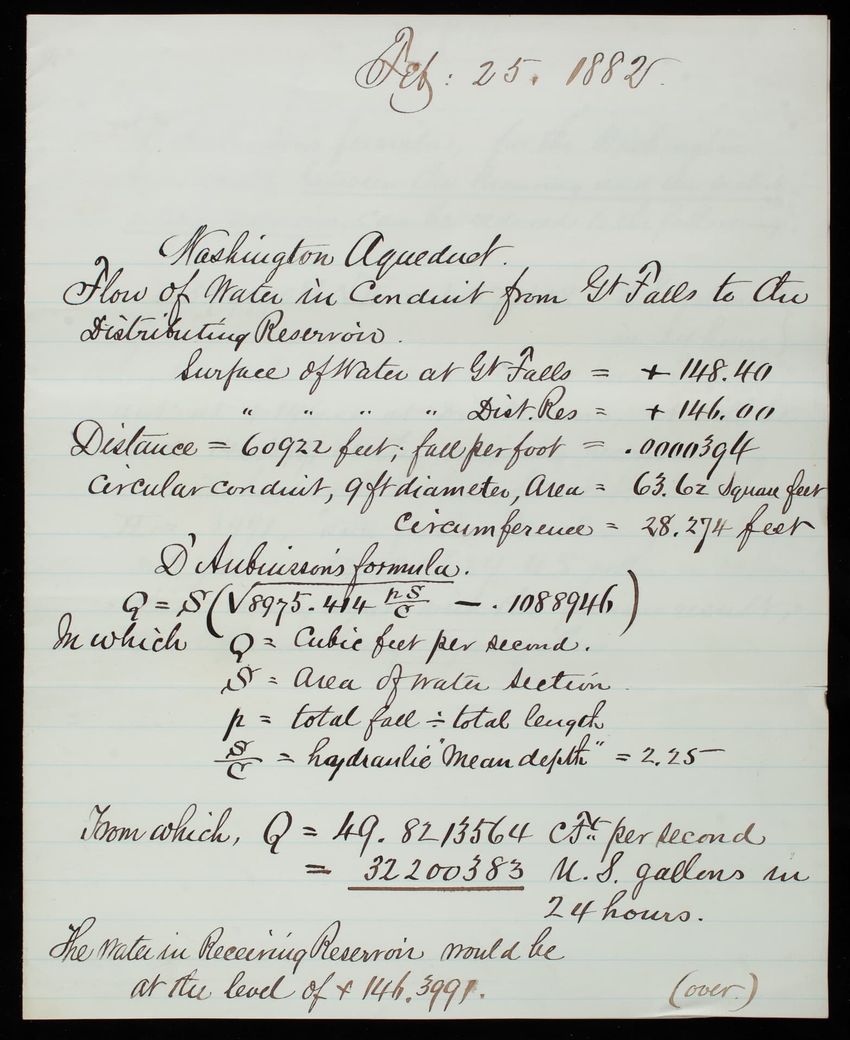 Feb: 25. 1882.
Washington Aqueduct.
Flow of Water in Conduit from Gt Falls to the
Distributing Reservoir.
Surface of Water at Gt Falls = + 148.40
" " " " Dist. Res = + 146.00
Distance = 60922 feet; fall per foot = .0000394
Circular conduit, 9 ft diameter, Area = 63.62 Square feet
Circumference = 28.274 feet
D'Aubuisson's formula.
Q = S (√8975.414 pS/C − .1088946)
In which Q = Cubic feet per second.
S = Area of water section.
p = total fall ÷ total length
S/C = hydraulic "Mean depth" = 2.25
From which, Q = 49.8213564 cFt. per second
= 32200383 U.S. gallons in
24 hours.
The Water in Receiving Reservoir would be
at the level of + 146.3991.
(over.)